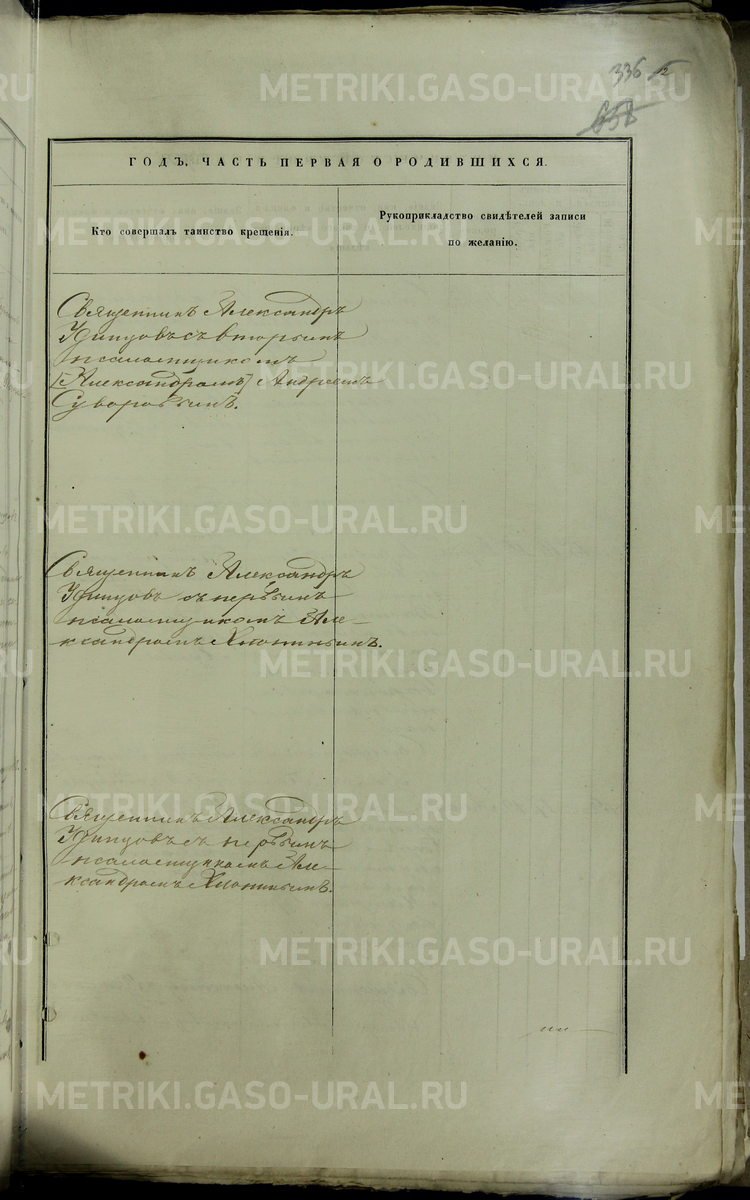 336
658
ГОДЪ, ЧАСТЬ ПЕРВАЯ О РОДИВШИХСЯ.
Кто совершалъ таинство крещенія.
Рукоприкладство свидѣтелей записи
по желанію.
Священникъ Александръ
съ вторымъ
псаломщикомъ
[Александромъ] Андреемъ
Суворовымъ.
Священникъ Александръ
съ первымъ
псаломщикомъ Але-
ксандромъ
Священникъ Александръ
съ первымъ
псаломщикомъ Але-
ксандромъ
METRIKI.GASO-URAL.RU